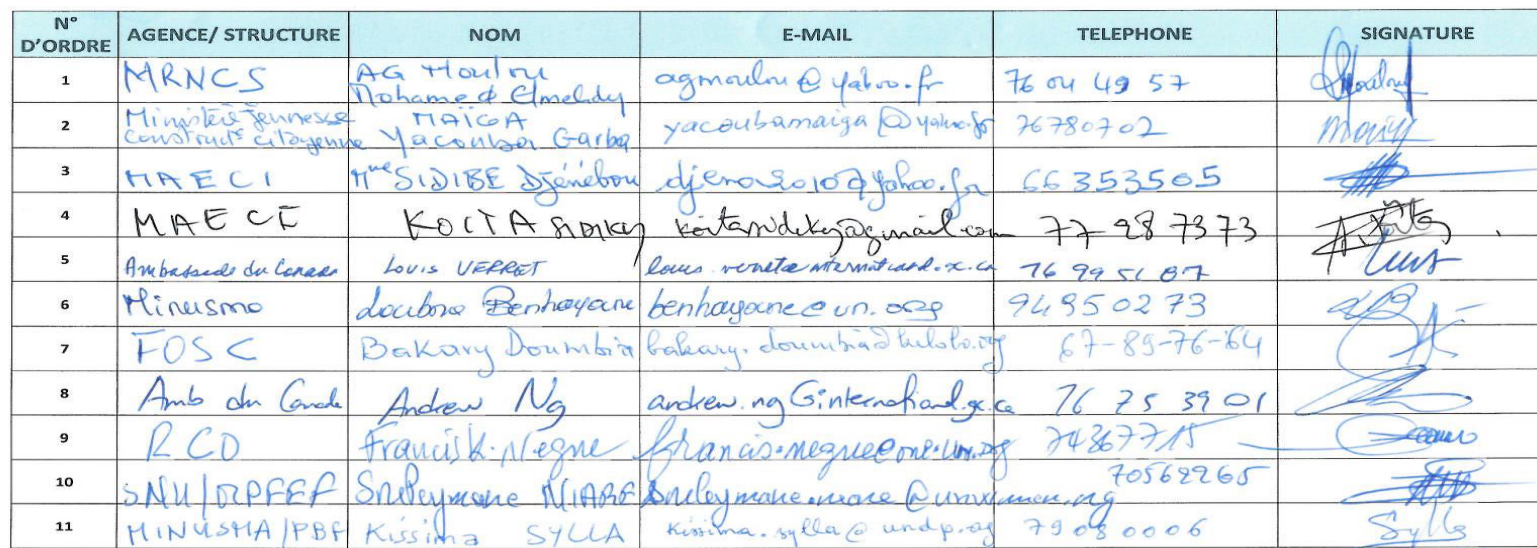 N° D'ORDRE AGENCE/ STRUCTURE NOM E-MAIL TELEPHONE SIGNATURE
1 MRNCS AG Moulou Mohamed Elmehdy agmoulou@yahoo.fr 76 04 49 57
2 Ministère Jeunesse Construct° citoyenne MAÏGA Yacouba Garba yacoubamaiga@yahoo.fr 76780702
3 MAECI Mme SIDIBE Djénébou djeno2010@yahoo.fr 66353505
4 MAECI KOITA Sidiky koitasidiky@gmail.com 77 98 73 73
5 Ambassade du Canada Louis VERRET 76 99 51 87
6 Minusma Loubna Benhayoune benhayoune@un.org 94950273
7 FOSC Bakary Doumbia 67-89-76-64
8 Amb du Canada Andrew Ng andrew.ng@international.gc.ca 76 75 39 01
9 RCO Francis K. Negue francis.negue@one.un.org 74367715
10 Souleymane NIARE 70562265
11 MINUSMA/PBF Kissima SYLLA kissima.sylla@undp.org 79080006 Sylla